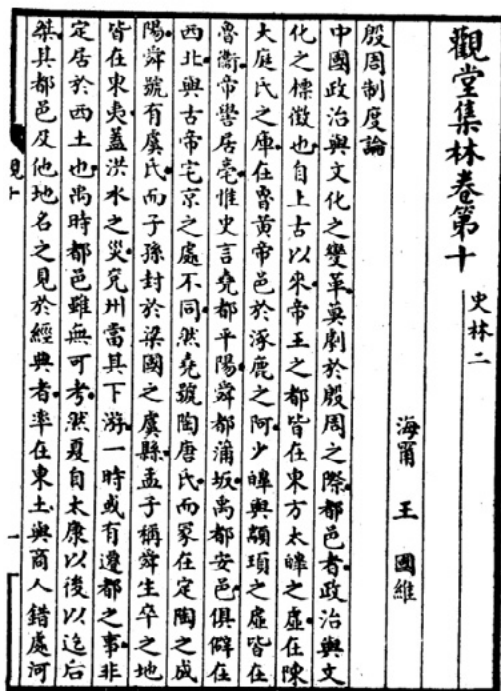 觀堂集林卷第十
史林二
海甯 王 國維
殷周制度論
中國政治與文化之變革莫劇於殷周之際都邑者政治與文
化之標徵也自上古以來帝王之都皆在東方太皞之虛在陳
大庭氏之庫在魯黃帝邑於涿鹿之阿少皞與顓頊之虛皆在
魯衞帝嚳居亳惟史言堯都平陽舜都蒲坂禹都安邑俱僻在
西北與古帝宅京之處不同然堯號陶唐氏而冢在定陶之成
陽舜號有虞氏而子孫封於梁國之虞縣孟子稱舜生卒之地
皆在東夷蓋洪水之災兗州當其下游一時或有遷都之事非
定居於西土也禹時都邑雖無可考然夏自太康以後以迄后
桀其都邑及他地名之見於經典者率在東土與商人錯處河
觀十
一